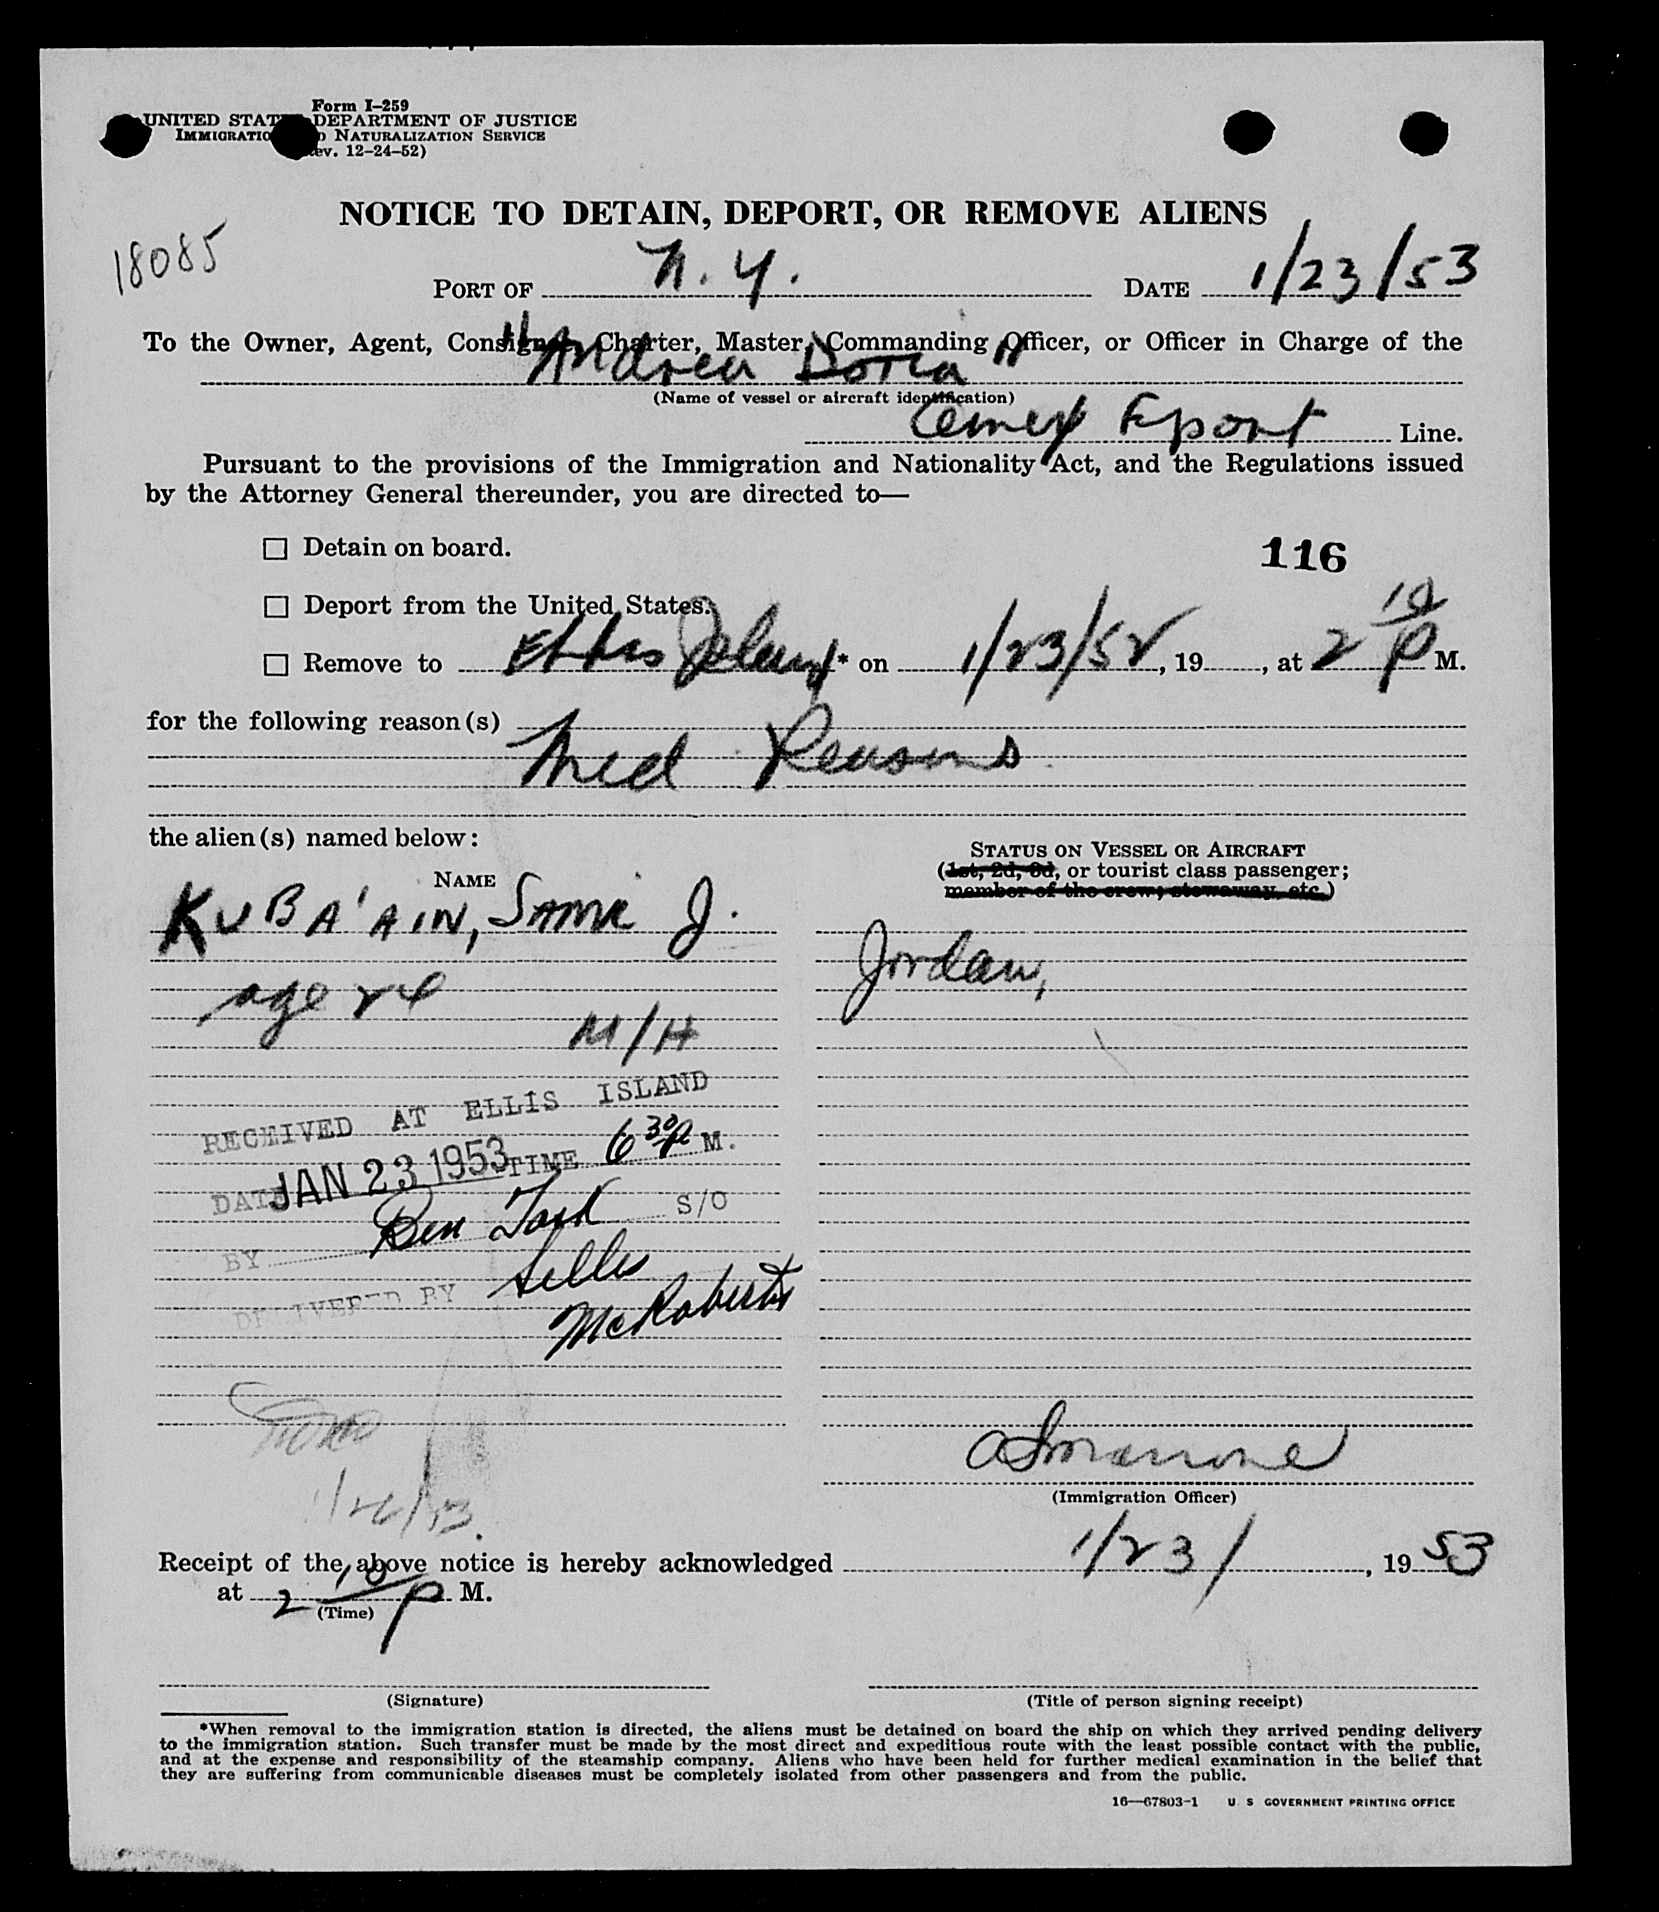 Form I-259
UNITED STAT DEPARTMENT OF JUSTICE
IMMIGRATIO D NATURALIZATION SERVICE
ev. 12-24-52)
NOTICE TO DETAIN, DEPORT, OR REMOVE ALIENS
18085
PORT OF N.Y. DATE 1/23/53
To the Owner, Agent, Consignee, Charter, Master, Commanding Officer, or Officer in Charge of the
"Andrea Doria"
(Name of vessel or aircraft identification)
Export Line.
Pursuant to the provisions of the Immigration and Nationality Act, and the Regulations issued
by the Attorney General thereunder, you are directed to—
☐ Detain on board.
116
☐ Deport from the United States.
☐ Remove to Ellis Island * on 1/23/52, 19 , at 2 10 P M.
for the following reason(s)
Med Reasons
the alien(s) named below:
STATUS ON VESSEL OR AIRCRAFT
(1st, 2d, 3d, or tourist class passenger;
member of the crew; stowaway, etc.)
NAME
KUBA'AIN, SAMI J.
Jordan,
age
M/H
RECEIVED AT ELLIS ISLAND
DATE JAN 23 1953 TIME 6 30 P M.
BY Ben S/O
DELIVERED BY
McRoberts
(Immigration Officer)
Receipt of the above notice is hereby acknowledged 1/23/, 19 53
at 2 10 P M.
(Time)
(Signature) (Title of person signing receipt)
*When removal to the immigration station is directed, the aliens must be detained on board the ship on which they arrived pending delivery
to the immigration station. Such transfer must be made by the most direct and expeditious route with the least possible contact with the public,
and at the expense and responsibility of the steamship company. Aliens who have been held for further medical examination in the belief that
they are suffering from communicable diseases must be completely isolated from other passengers and from the public.
16—67803-1 U. S. GOVERNMENT PRINTING OFFICE